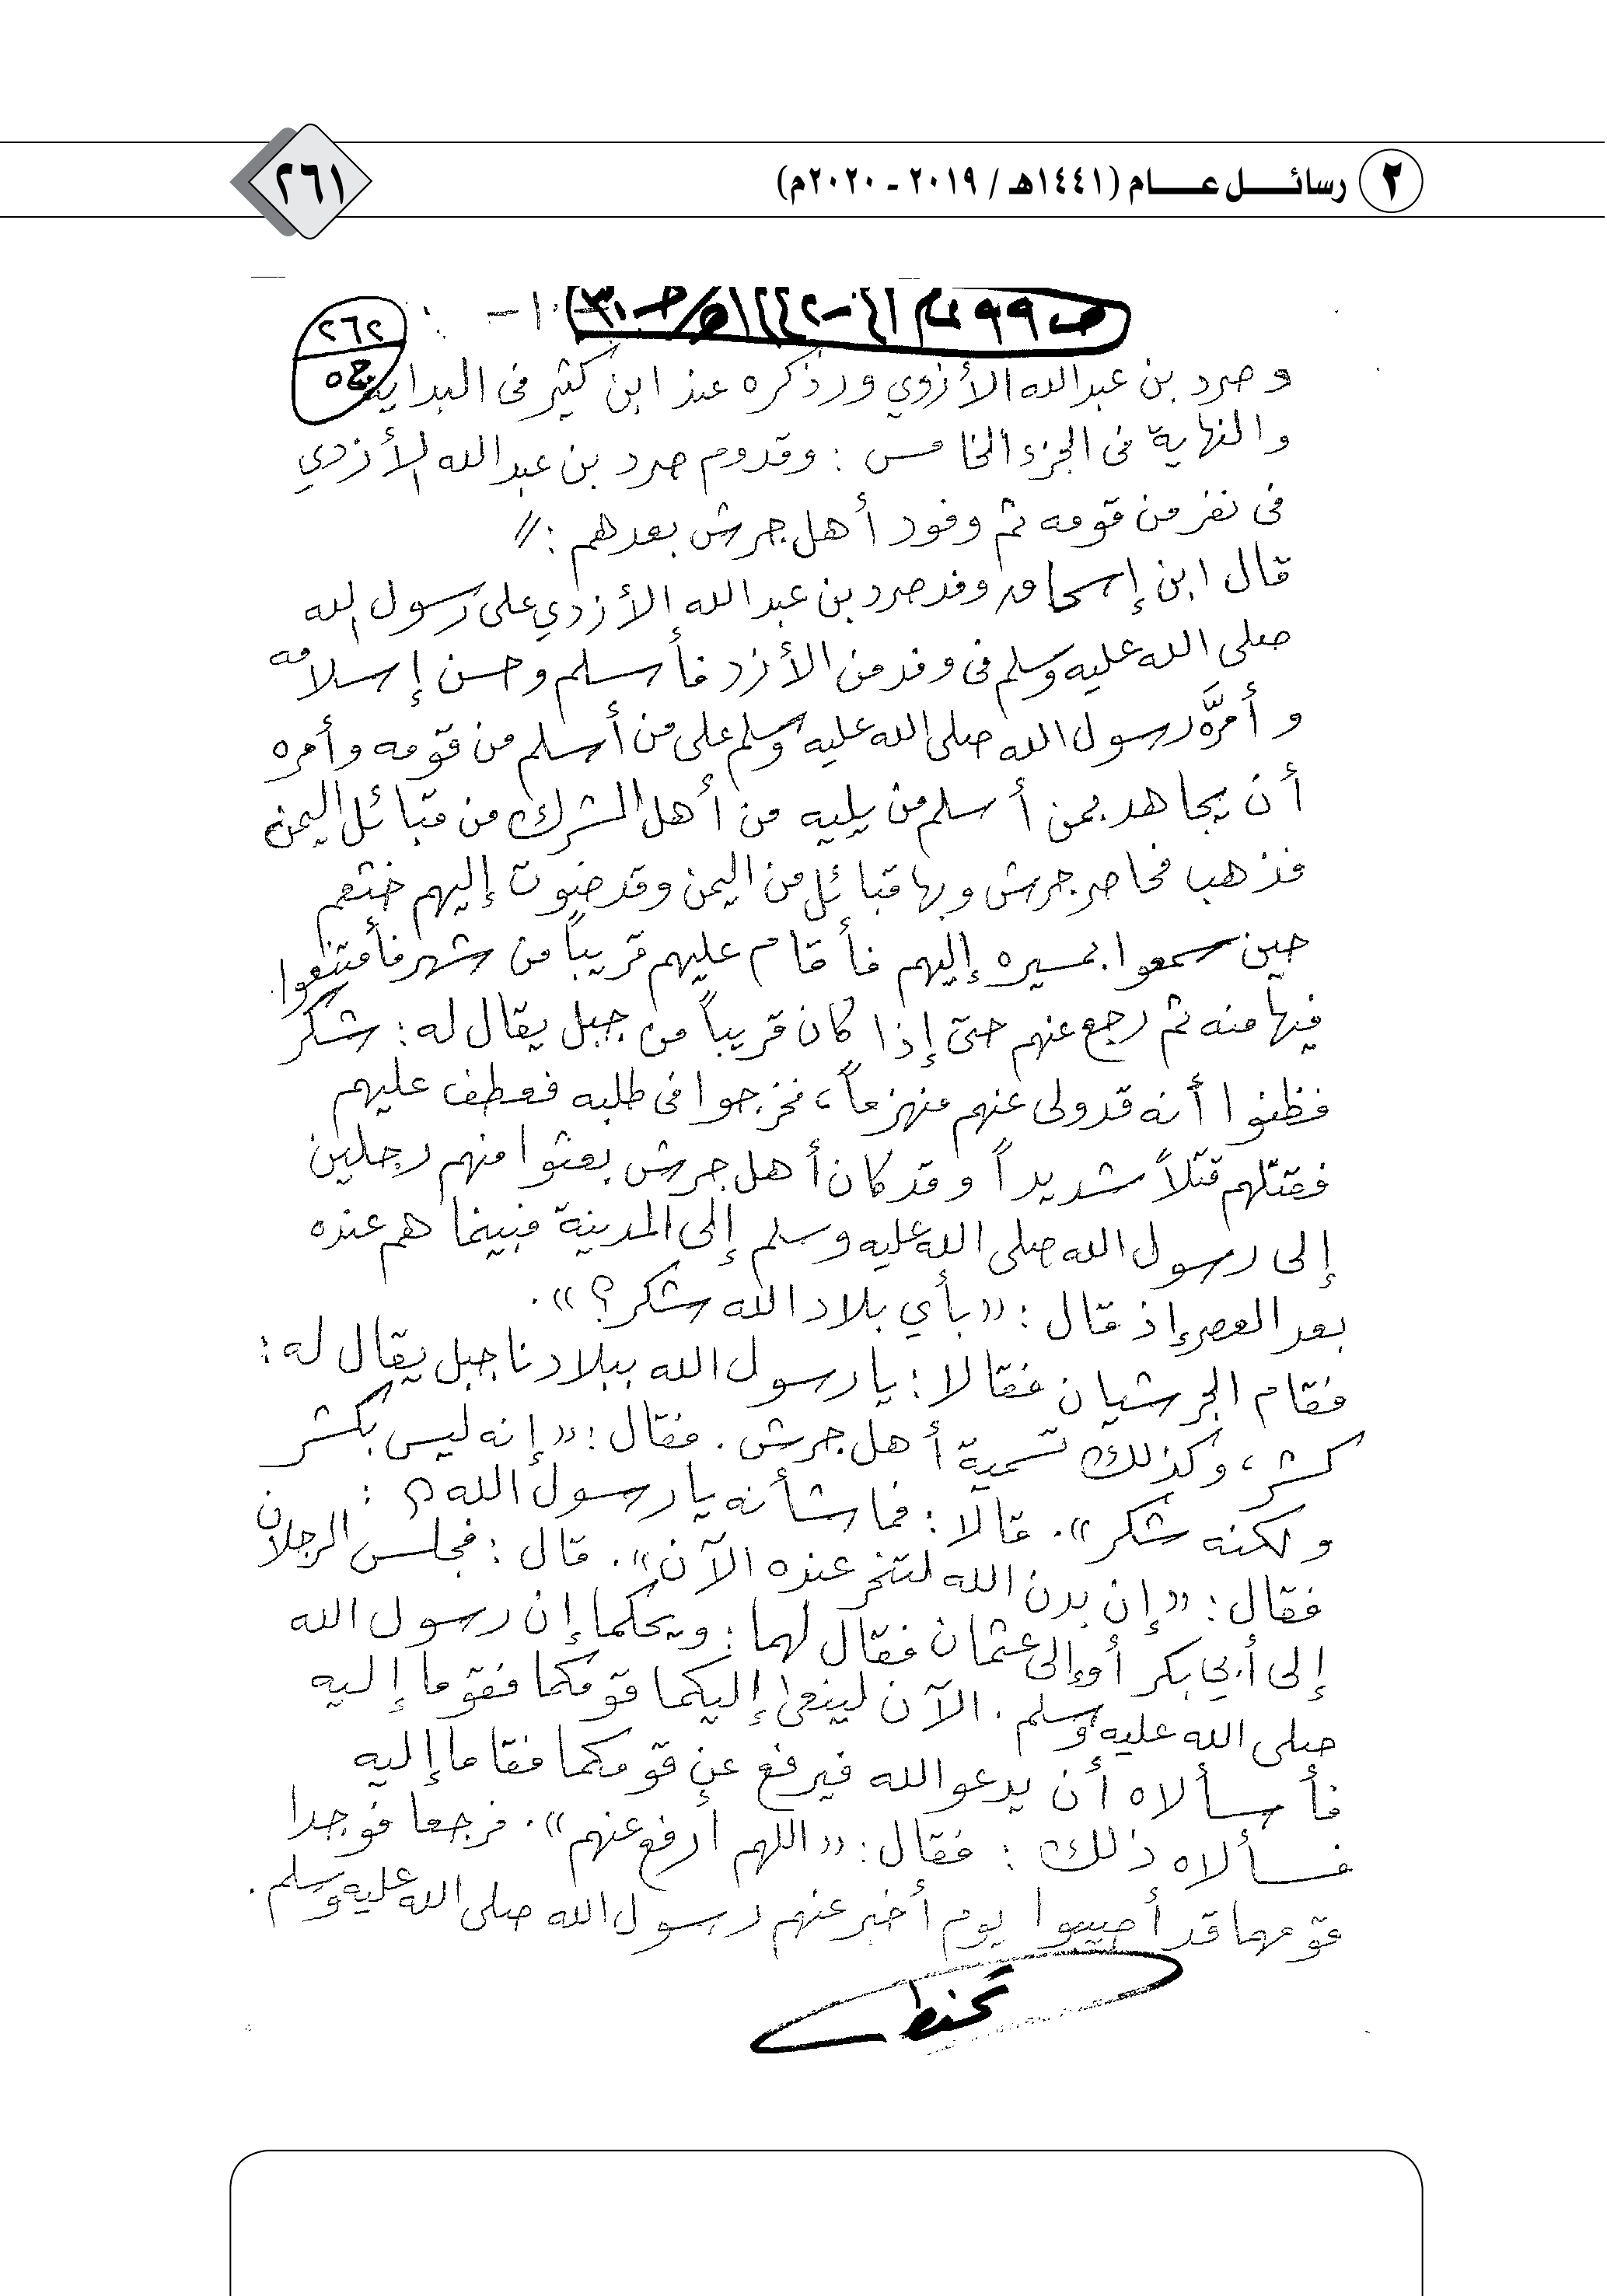 ٢ رسائل عام (١٤٤١هـ / ٢٠١٩ - ٢٠٢٠م)
٢٦١
٢٦٢
ج٥
وصرد بن عبدالله الأزوي ورد ذكره عند ابن كثير في البداية
والنهاية في الجزء الخامس : وقدوم صرد بن عبدالله الأزدي
في نفر من قومه ثم وفود أهل جرش بعدهم : //
قال ابن إسحاق وفد صرد بن عبدالله الأزدي على رسول الله
صلى الله عليه وسلم في وفد من الأزد فأسلم وحسن إسلامه
وأمَّره رسول الله صلى الله عليه وسلم على من أسلم من قومه وأمره
أن يجاهد بمن أسلم من يليه من أهل الشرك من قبائل اليمن
فذهب فحاصر جرش وبها قبائل من اليمن وقد ضوت إليهم خثعم
حين سمعوا بمسيره إليهم فأقام عليهم قريباً من شهر فأمتنعوا
فيها منه ثم رجع عنهم حتى إذا كان قريباً من جبل يقال له : شكر
فظنوا أنه قد ولى عنهم منهزماً ، فخرجوا في طلبه فعطف عليهم
فقتلهم قتلاً شديداً وقد كان أهل جرش بعثوا منهم رجلين
إلى رسول الله صلى الله عليه وسلم إلى المدينة فبينما هم عنده
بعد العصر إذ قال : «بأي بلاد الله شكر؟» .
فقام الجرشيان فقالا : يا رسول الله ببلادنا جبل يقال له :
كشر ، وكذلك تسمية أهل جرش . فقال : «إنه ليس بكشر
ولكنه شكر» . قالا : فما شأنه يا رسول الله ؟ :
فقال : «إن بدن الله لتنحر عنده الآن» . قال : فجلس الرجلان
إلى أبي بكر أو إلى عثمان فقال لهما : ويحكما إن رسول الله
صلى الله عليه وسلم . الآن لينعى إليكما قومكما فقوما إليه
فأسألاه أن يدعو الله فيرفع عن قومكما فقاما إليه
فسألاه ذلك : فقال : «اللهم أرفع عنهم» . فرجعا فوجدا
قومهما قد أصيبوا يوم أخبر عنهم رسول الله صلى الله عليه وسلم .